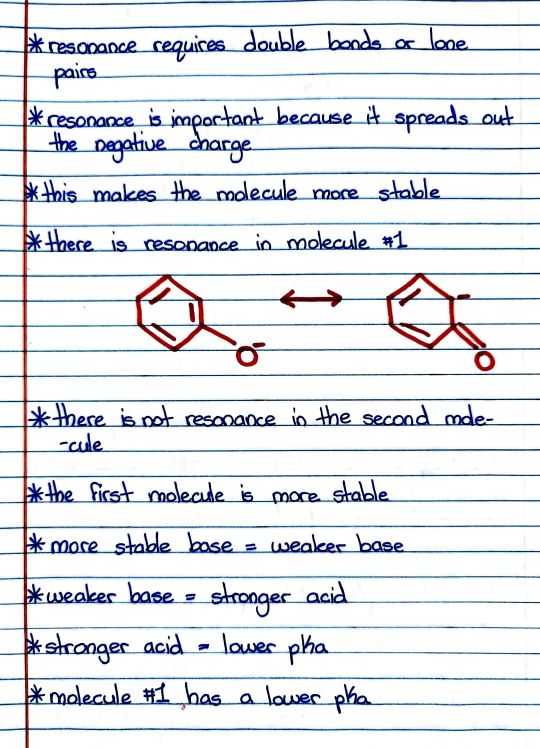 *resonance requires double bonds or lone
pairs
*resonance is important because it spreads out
the negative charge
*this makes the molecule more stable
*there is resonance in molecule #1
O⁻
-
O
*there is not resonance in the second mole-
-cule
*the first molecule is more stable
*more stable base = weaker base
*weaker base = stronger acid
*stronger acid = lower pka
*molecule #1 has a lower pka